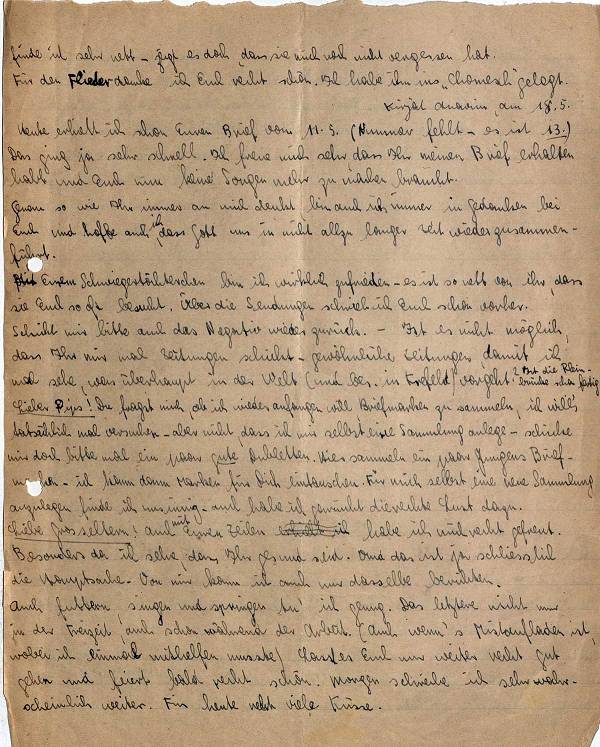 finde ich sehr nett – zeigt es doch, dass sie mich noch nicht vergessen hat.
Für den Flieder danke ich Euch recht schön. Ich habe ihn ins „Chomesch“ gelegt.
Kirjat Anavim, am 18.5.
Heute erhielt ich schon Euren Brief vom 11.5. (Nummer fehlt – es ist 13.)
Das ging ja sehr schnell. Ich freue mich sehr dass Ihr meinen Brief erhalten
habt und Euch nun keine Sorgen mehr zu machen braucht.
Genau so wie Ihr immer an mich denkt bin auch ich immer in Gedanken bei
Euch und hoffe auch ich, dass Gott uns in nicht allzu langer Zeit wieder zusammen-
führt.
Mit Eurem Schwiegertöchterchen bin ich wirklich zufrieden – es ist so nett von ihr, dass
sie Euch so oft besucht. Über die Sendungen schrieb ich Euch schon vorher.
Schickt mir bitte auch das Negativ wieder zurück. – Ist es nicht möglich,
dass Ihr mir mal Zeitungen schickt – gewöhnliche Zeitungen, damit ich
mal sehe, was überhaupt in der Welt (und bes. in Krefeld) vorgeht? Ist die Rhein-
brücke schon fertig
Lieber Pips! Du fragst mich, ob ich wieder anfangen will Briefmarken zu sammeln, ich will's
tatsächlich mal versuchen – aber nicht dass ich mir selbst eine Sammlung anlege – schicke
mir doch bitte mal ein paar gute Dubletten. Hier sammeln ein paar Jungens Brief-
marken – ich kann dann Marken für Dich eintauschen. Für mich selbst eine neue Sammlung
anzulegen finde ich unsinnig – auch habe ich garnicht die rechte Lust dazu.
Liebe Grosseltern! auch mit Euren Zeilen habe ich mich recht gefreut.
Besonders da ich sehe, dass Ihr gesund seid. Und das ist ja schliesslich
die Hauptsache. Von mir kann ich auch nur dasselbe berichten.
Auch futtern, singen und springen tu' ich genug. Das letztere nicht nur
in der Freizeit, auch schon während der Arbeit. (Auch wenn's Mistaufladen ist,
wobei ich einmal mithelfen musste) Lasst es Euch nur weiter recht gut
gehen und feiert bald recht schön. Morgen schreibe ich sehr wahr-
scheinlich weiter. Für heute recht viele Küsse.